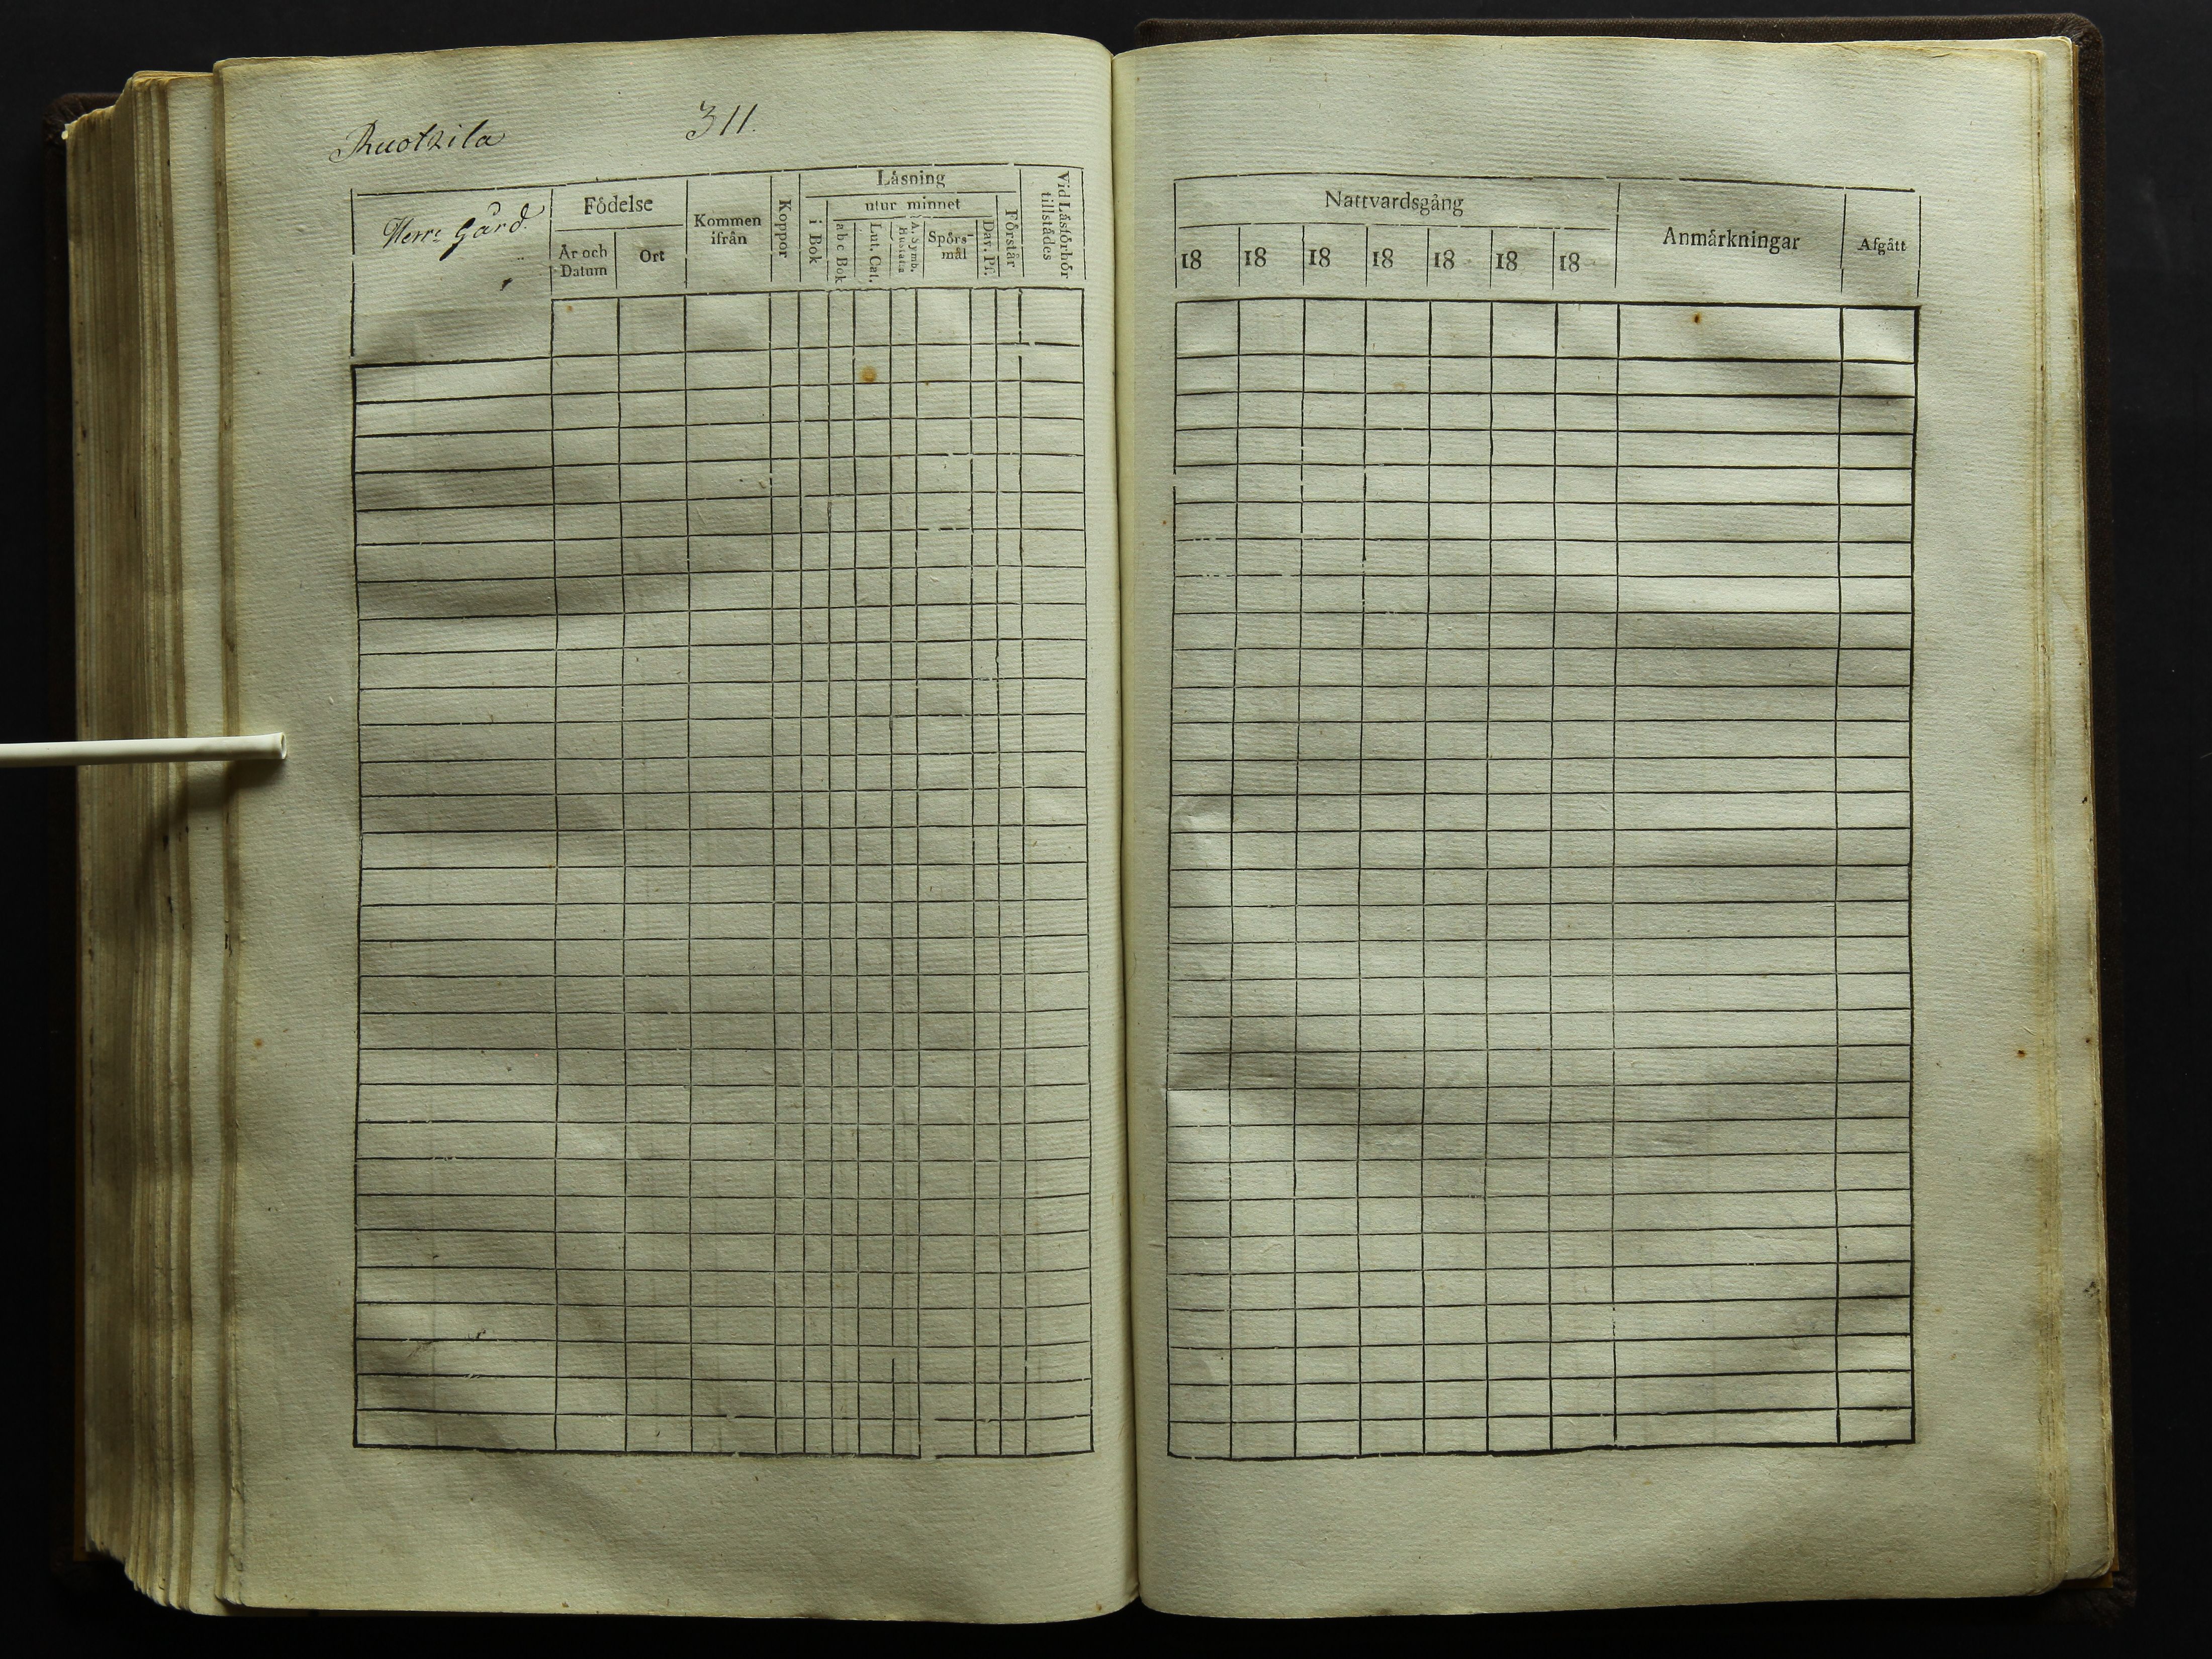 Ruotzila
311.
Herre Gård.
Födelse
År och
Datum
Ort
Kommen
ifrån
Koppor
Läsning
i Bok
utur minnet
a b c Bok
Lut. Cat.
A. Symb.
Hustafla
Spörs-
mål
Dav. Ps.
Förstår
Vid Läsförhör
tillstädes
Nattvardsgång
18 18 18 18 18 18 18
Anmärkningar
Afgått